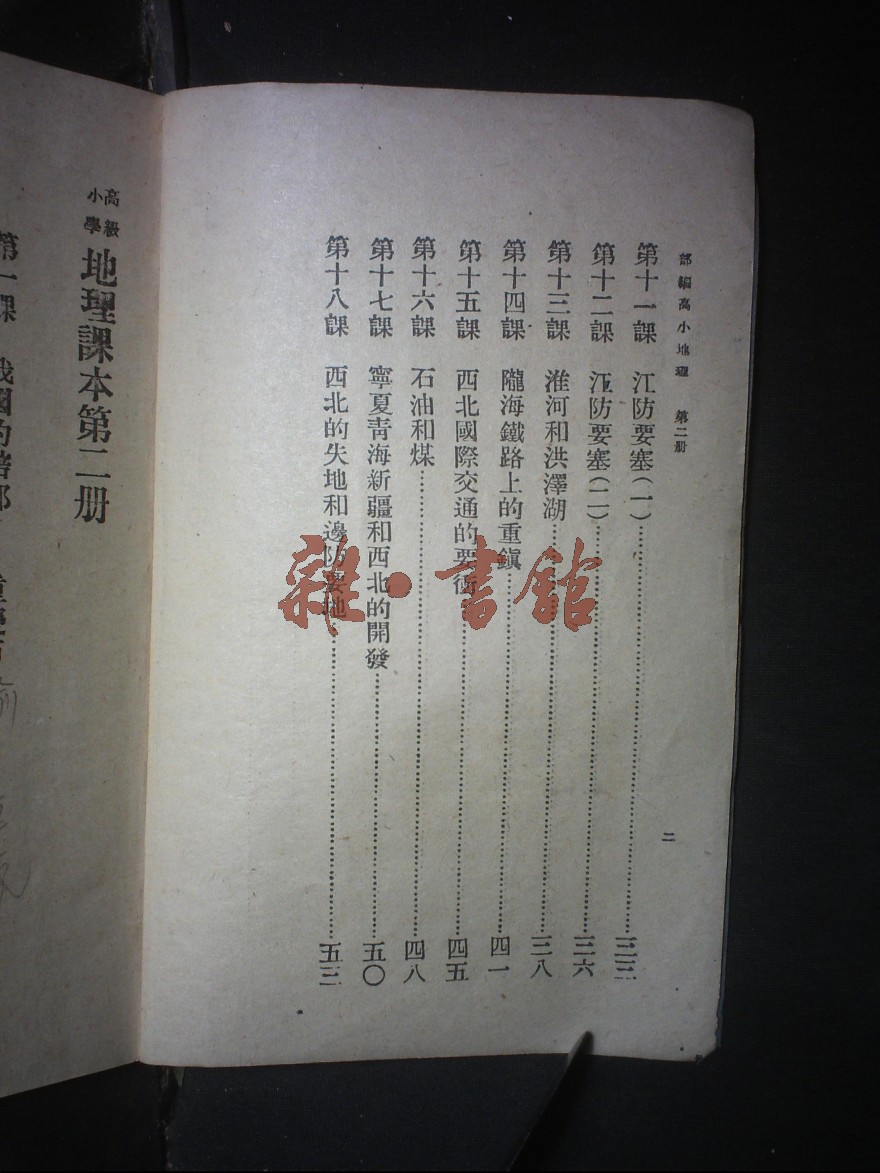 部編高小地理 第二册
第十一課 江防要塞(一)……三三
第十二課 江防要塞(二)……三六
第十三課 淮河和洪澤湖……三八
第十四課 隴海鐵路上的重鎮……四一
第十五課 西北國際交通的要衝……四五
第十六課 石油和煤……四八
第十七課 寧夏靑海新疆和西北的開發……五〇
第十八課 西北的失地和邊防要地……五三
二
雜·書館
高級小學 地理課本第二册
第一課